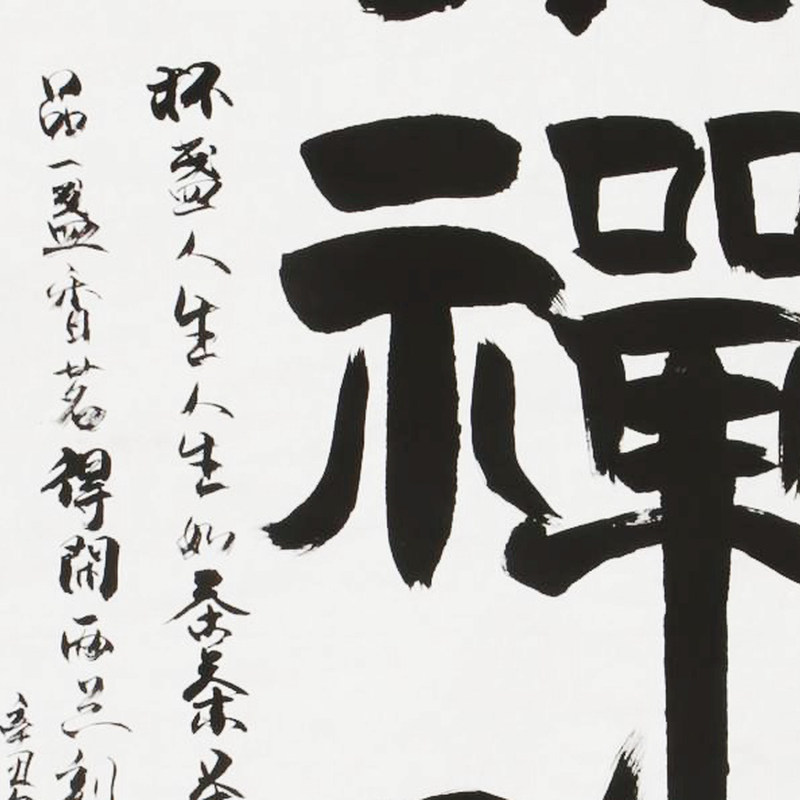 禪
杯盞人生人生如茶茶
品一盞香茗得閑兩三刻
辛丑